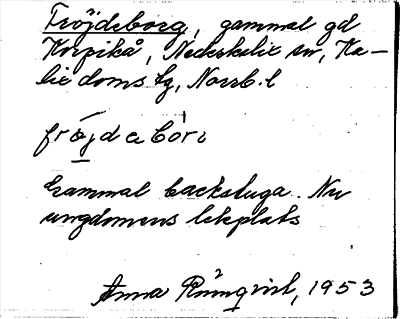 Fröjdeborg, gammal gd
Korpikå, Nederkalix sn, Ka-
lix doms tg, Norrb. l
fröjdabori
Gammal backstuga. Nu
ungdomens lekplats
Anna Rönnqvist, 1953